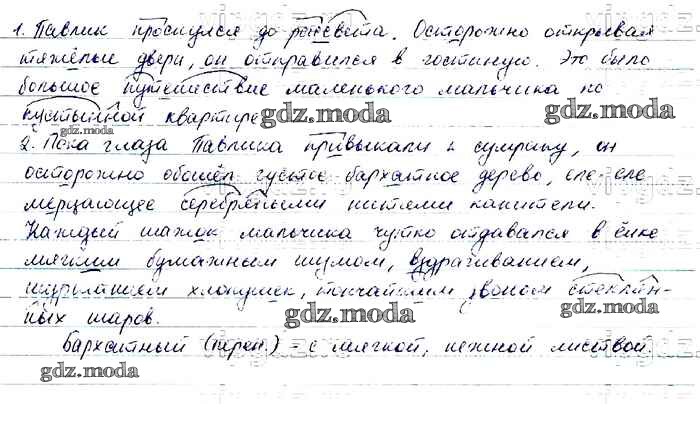 1. Павлик проснулся до рассвета. Осторожно открывая
тяжёлые двери, он отправился в гостиную. Это было
большое путешествие маленького мальчика по
пустынной квартире
gdz.moda
gdz.moda
gdz.moda
2. Пока глаза Павлика привыкали к сумраку, он
осторожно обошёл густое бархатное дерево, еле-еле
мерцающее серебряными нитями канители.
Каждый шажок мальчика чутко отдавался в ёлке
мягким бумажным шумом, вздрагиванием,
шуршанием хлопушек, тончайшим звоном стеклян-
ных шаров.
gdz.moda
Бархатный (перен.) - с мягкой, нежной листвой.
gdz.moda